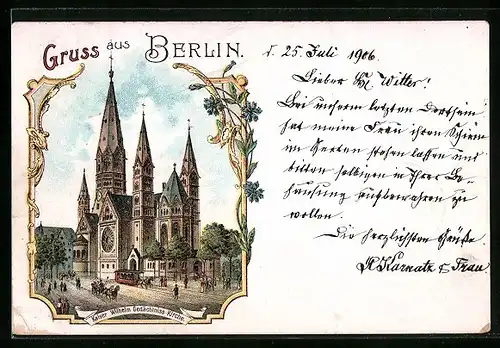 Gruss aus BERLIN.
d. 25. Juli 1906
Lieber Hr. Witter!
Bei unserm letzten Dortsein
hat meine Frau ihren Schirm
im Garten stehen lassen und
bitten selbigen in Ihrer Be-
hausung aufbewahren zu
wollen.
Die herzlichsten Grüße.
R. Karnatz & Frau.
Kaiser Wilhelm Gedächtniss-Kirche.